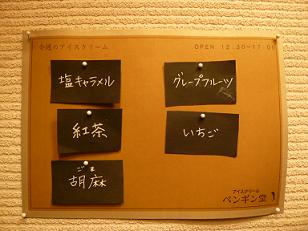 今週のアイスクリーム
OPEN 12:30~17:00
塩キャラメル
グレープフルーツ
紅茶
いちご
ごま
胡麻
アイスクリーム
ペンギン堂